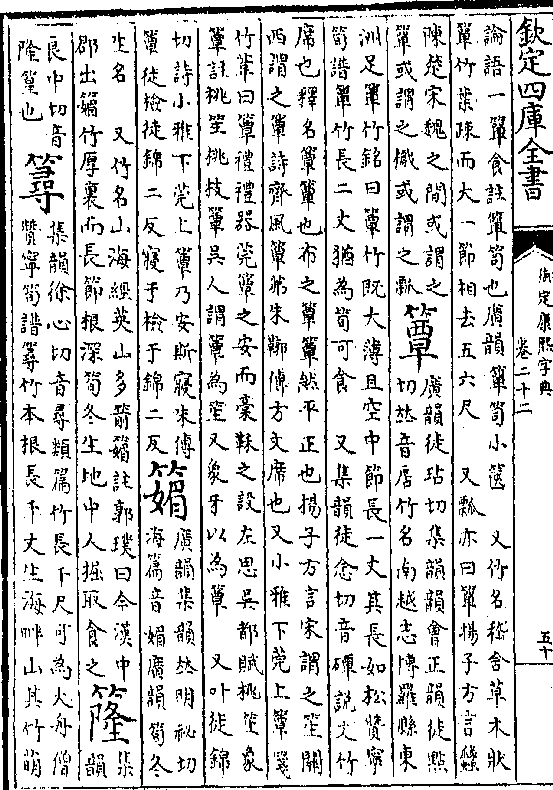 欽定四庫全書
御定康熙字典
卷二十二
五十
論語一簞食註簞笥也廣韻簞笥小篋　又竹名嵇含草木狀
簞竹葉疎而大一節相去五六尺　又瓢亦曰簞揚子方言蠡
陳楚宋魏之間或謂之
簞或謂之㰕或謂之瓢
簟
廣韻徒玷切集韻韻會正韻徒點
切𠀤音居竹名南越志博羅縣東
洲足簟竹銘曰簟竹既大薄且空中節長一丈其長如松贊寧
筍譜簟竹長二丈猶為筍可食　又集韻徒念切音磹說文竹
席也釋名簟簟也布之簟簟然平正也揚子方言宋謂之笙關
西謂之簟詩齊風簟茀朱鞹傳方文席也又小雅下莞上簟箋
竹葦曰簟禮禮器莞簟之安而稾鞂之設左思吳都賦桃笙象
簟註桃笙桃枝簟吳人謂簟為笙又象牙以為簟　又叶徒錦
切詩小雅下莞上簟乃安斯寢朱傳
簟徒檢徒錦二反寢于檢于錦二反
䉋
廣韻集韻𠀤明祕切
海篇音媚廣韻筍冬
生名　又竹名山海經英山多箭䉋註郭璞曰今漢中
郡出䉋竹厚裏而長節根深筍冬生地中人掘取食之
䉄
集
韻
良中切音
隆篁也
䉣
集韻徐心切音尋類篇竹長千尺可為大舟僧
贊寧筍譜䉣竹本根長千丈生海畔山其竹萌